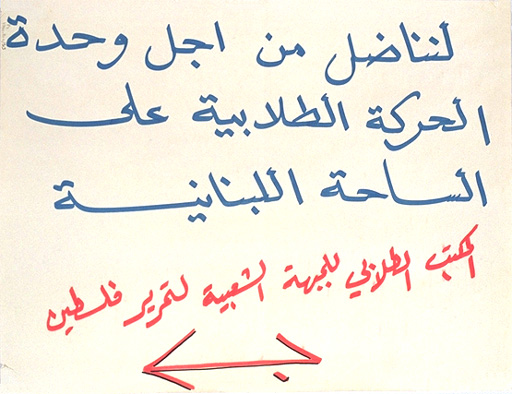 لنناضل من اجل وحدة
الحركة الطلابية على
الساحة اللبنانية
المكتب الطلابي للجبهة الشعبية لتحرير فلسطين